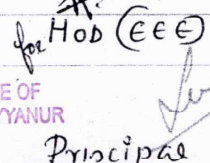 for HOD (EEE)
E OF
YYANUR
Principal